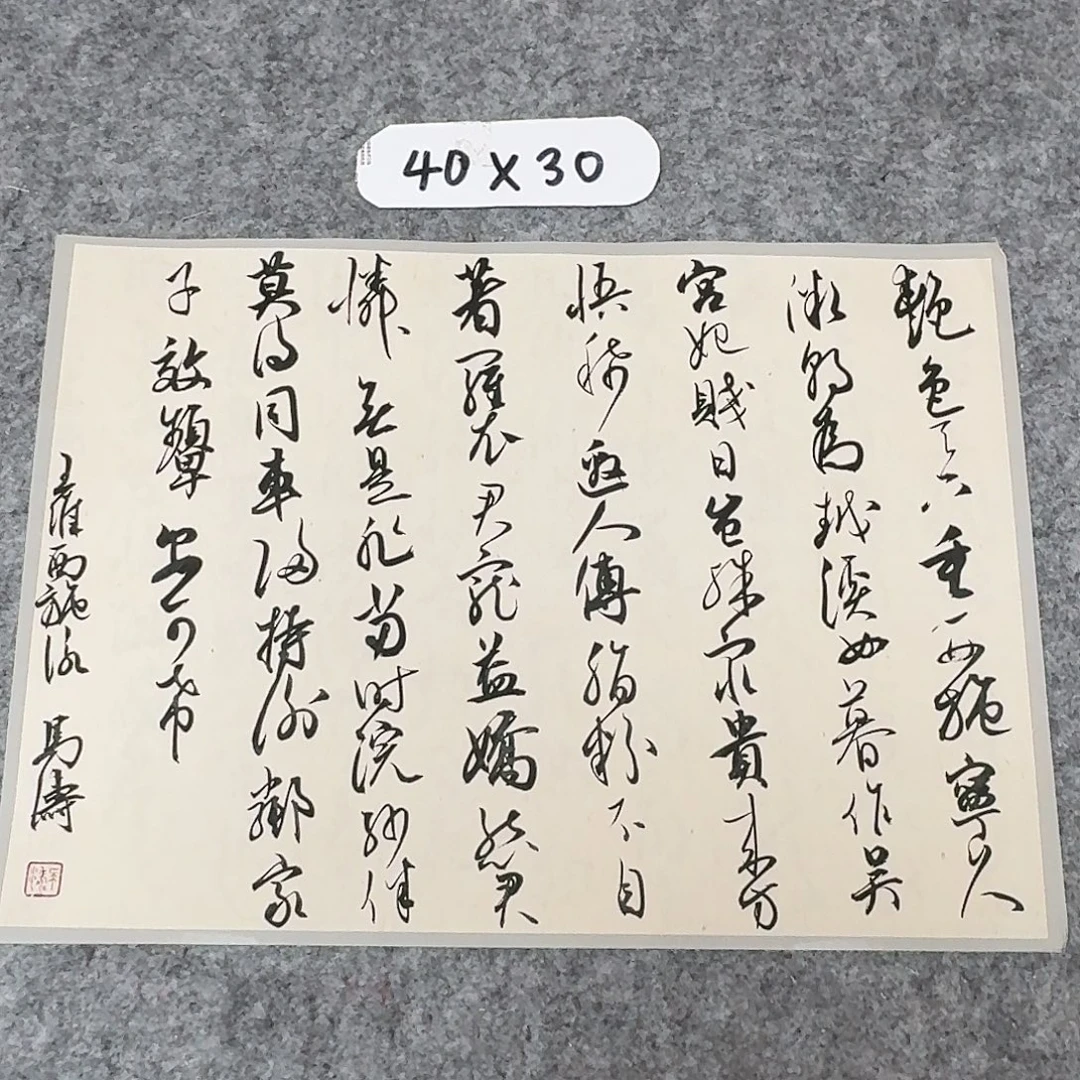 40 X 30
艷色天下重西施寧久
微朝為越溪女暮作吳
宮妃賤日豈殊眾貴來方
悟稀邀人傅脂粉不自
著羅衣君寵益嬌態君
憐無是非當時浣紗伴
莫得同車歸持謝鄰家
子效顰安可希
王維西施詠 馬濤